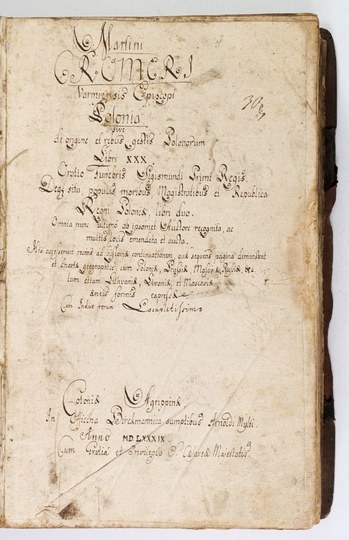 Martini
CROMERI
Varmiensis Episcopi
Polonia
sive
de origine et rebus gestis Polonorum
Libri XXX
Oratio Funebris Sigismundi Primi Regis
Deqз situ populis moribus Magistratibus et Republica
Regni Poloniæ libri duo.
Omnia nunc ultimo ab ipsomet Auctore recognita, ac
multis locis emendata et aucta.
His accesserunt recens ad Historiæ continuationem, quæ sequens pagina demonstrat
et Charta geographica tum Poloniæ, Prussiæ, Masoviæ, Russiæ, etc.
tum etiam Lithvaniæ, Livoniæ, et Moscoviæ
formis expressæ
Cum Indice rerum Locupletissimo
Coloniæ Agrippinæ
In Officina Birckmannica sumptibus Arnoldi Mylii
Anno MD.LXXXIX
Cum Gratia et Privilegio S. Cæsareæ Maiestatis